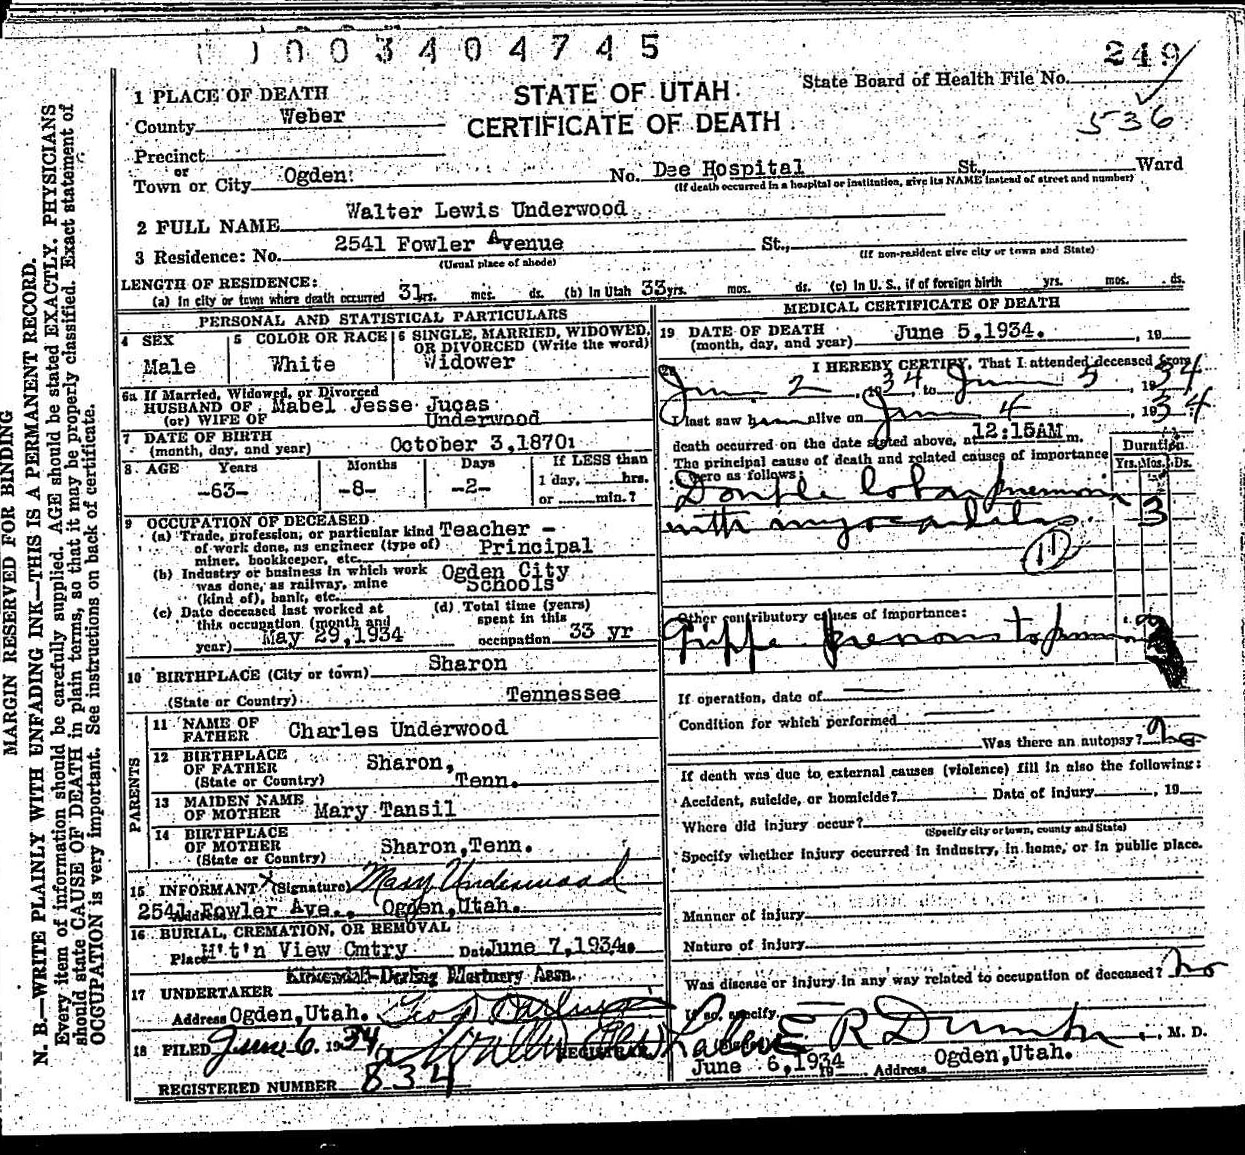 1003404745
249
State Board of Health File No.
536
STATE OF UTAH
CERTIFICATE OF DEATH
1 PLACE OF DEATH
County Weber
Precinct
or
Town or City Ogden No. Dee Hospital St., Ward
(If death occurred in a hospital or institution, give its NAME instead of street and number)
2 FULL NAME Walter Lewis Underwood
3 Residence: No. 2541 Fowler Avenue St.,
(Usual place of abode) (If non-resident give city or town and State)
LENGTH OF RESIDENCE:
(a) In city or town where death occurred 31 yrs. mos. ds. (b) In Utah 33 yrs. mos. ds. (c) In U. S., if of foreign birth yrs. mos. ds.
PERSONAL AND STATISTICAL PARTICULARS
4 SEX
Male
5 COLOR OR RACE
White
6 SINGLE, MARRIED, WIDOWED, OR DIVORCED (Write the word)
Widower
6a If Married, Widowed, or Divorced
HUSBAND OF Mabel Jesse Jugas
(or) WIFE OF Underwood
7 DATE OF BIRTH
(month, day, and year) October 3,1870
8 AGE Years Months Days If LESS than
-63- -8- -2- 1 day, hrs.
or min.?
9 OCCUPATION OF DECEASED
(a) Trade, profession, or particular kind Teacher -
of work done, as engineer (type of) Principal
miner, bookkeeper, etc.
(b) Industry or business in which work Ogden City
was done, as railway, mine Schools
(kind of), bank, etc.
(c) Date deceased last worked at (d) Total time (years)
this occupation (month and spent in this
year) May 29,1934 occupation 33 yr
10 BIRTHPLACE (City or town) Sharon
(State or Country) Tennessee
PARENTS
11 NAME OF
FATHER Charles Underwood
12 BIRTHPLACE
OF FATHER Sharon,
(State or Country) Tenn.
13 MAIDEN NAME
OF MOTHER Mary Tansil
14 BIRTHPLACE
OF MOTHER Sharon,Tenn.
(State or Country)
15 INFORMANT x (Signature) Mary Underwood
Address 2541 Fowler Ave., Ogden,Utah.
16 BURIAL, CREMATION, OR REMOVAL
Place M't'n View Cmtry Date June 7,1934 19
Kirkendall-Darling Mortuary Assn.
17 UNDERTAKER
Address Ogden,Utah. Geo
18 FILED June 6. 1934
REGISTRAR
REGISTERED NUMBER 834
MEDICAL CERTIFICATE OF DEATH
19 DATE OF DEATH
(month, day, and year) June 5,1934. , 19
20 I HEREBY CERTIFY, That I attended deceased from
June 2 , 1934, to June 5 , 1934
I last saw him alive on June 4 , 1934
death occurred on the date stated above, at 12:15AM m.
The principal cause of death and related causes of importance
were as follows:
Duration
Yrs. Mos. Ds.
Double lobar pneumonia
with myocarditis. 3
11
Other contributory causes of importance:
Grippe previous to pneumonia
If operation, date of
Condition for which performed
Was there an autopsy? no
If death was due to external causes (violence) fill in also the following:
Accident, suicide, or homicide? Date of injury , 19
Where did injury occur?
(Specify city or town, county and State)
Specify whether injury occurred in industry, in home, or in public place.
Manner of injury
Nature of injury
Was disease or injury in any way related to occupation of deceased? no
If so, specify.
E R Dumke , M. D.
June 6,1934 19 Address Ogden,Utah.
MARGIN RESERVED FOR BINDING
N. B.—WRITE PLAINLY WITH UNFADING INK—THIS IS A PERMANENT RECORD.
Every item of information should be carefully supplied. AGE should be stated EXACTLY. PHYSICIANS
should state CAUSE OF DEATH in plain terms, so that it may be properly classified. Exact statement of
OCCUPATION is very important. See instructions on back of certificate.